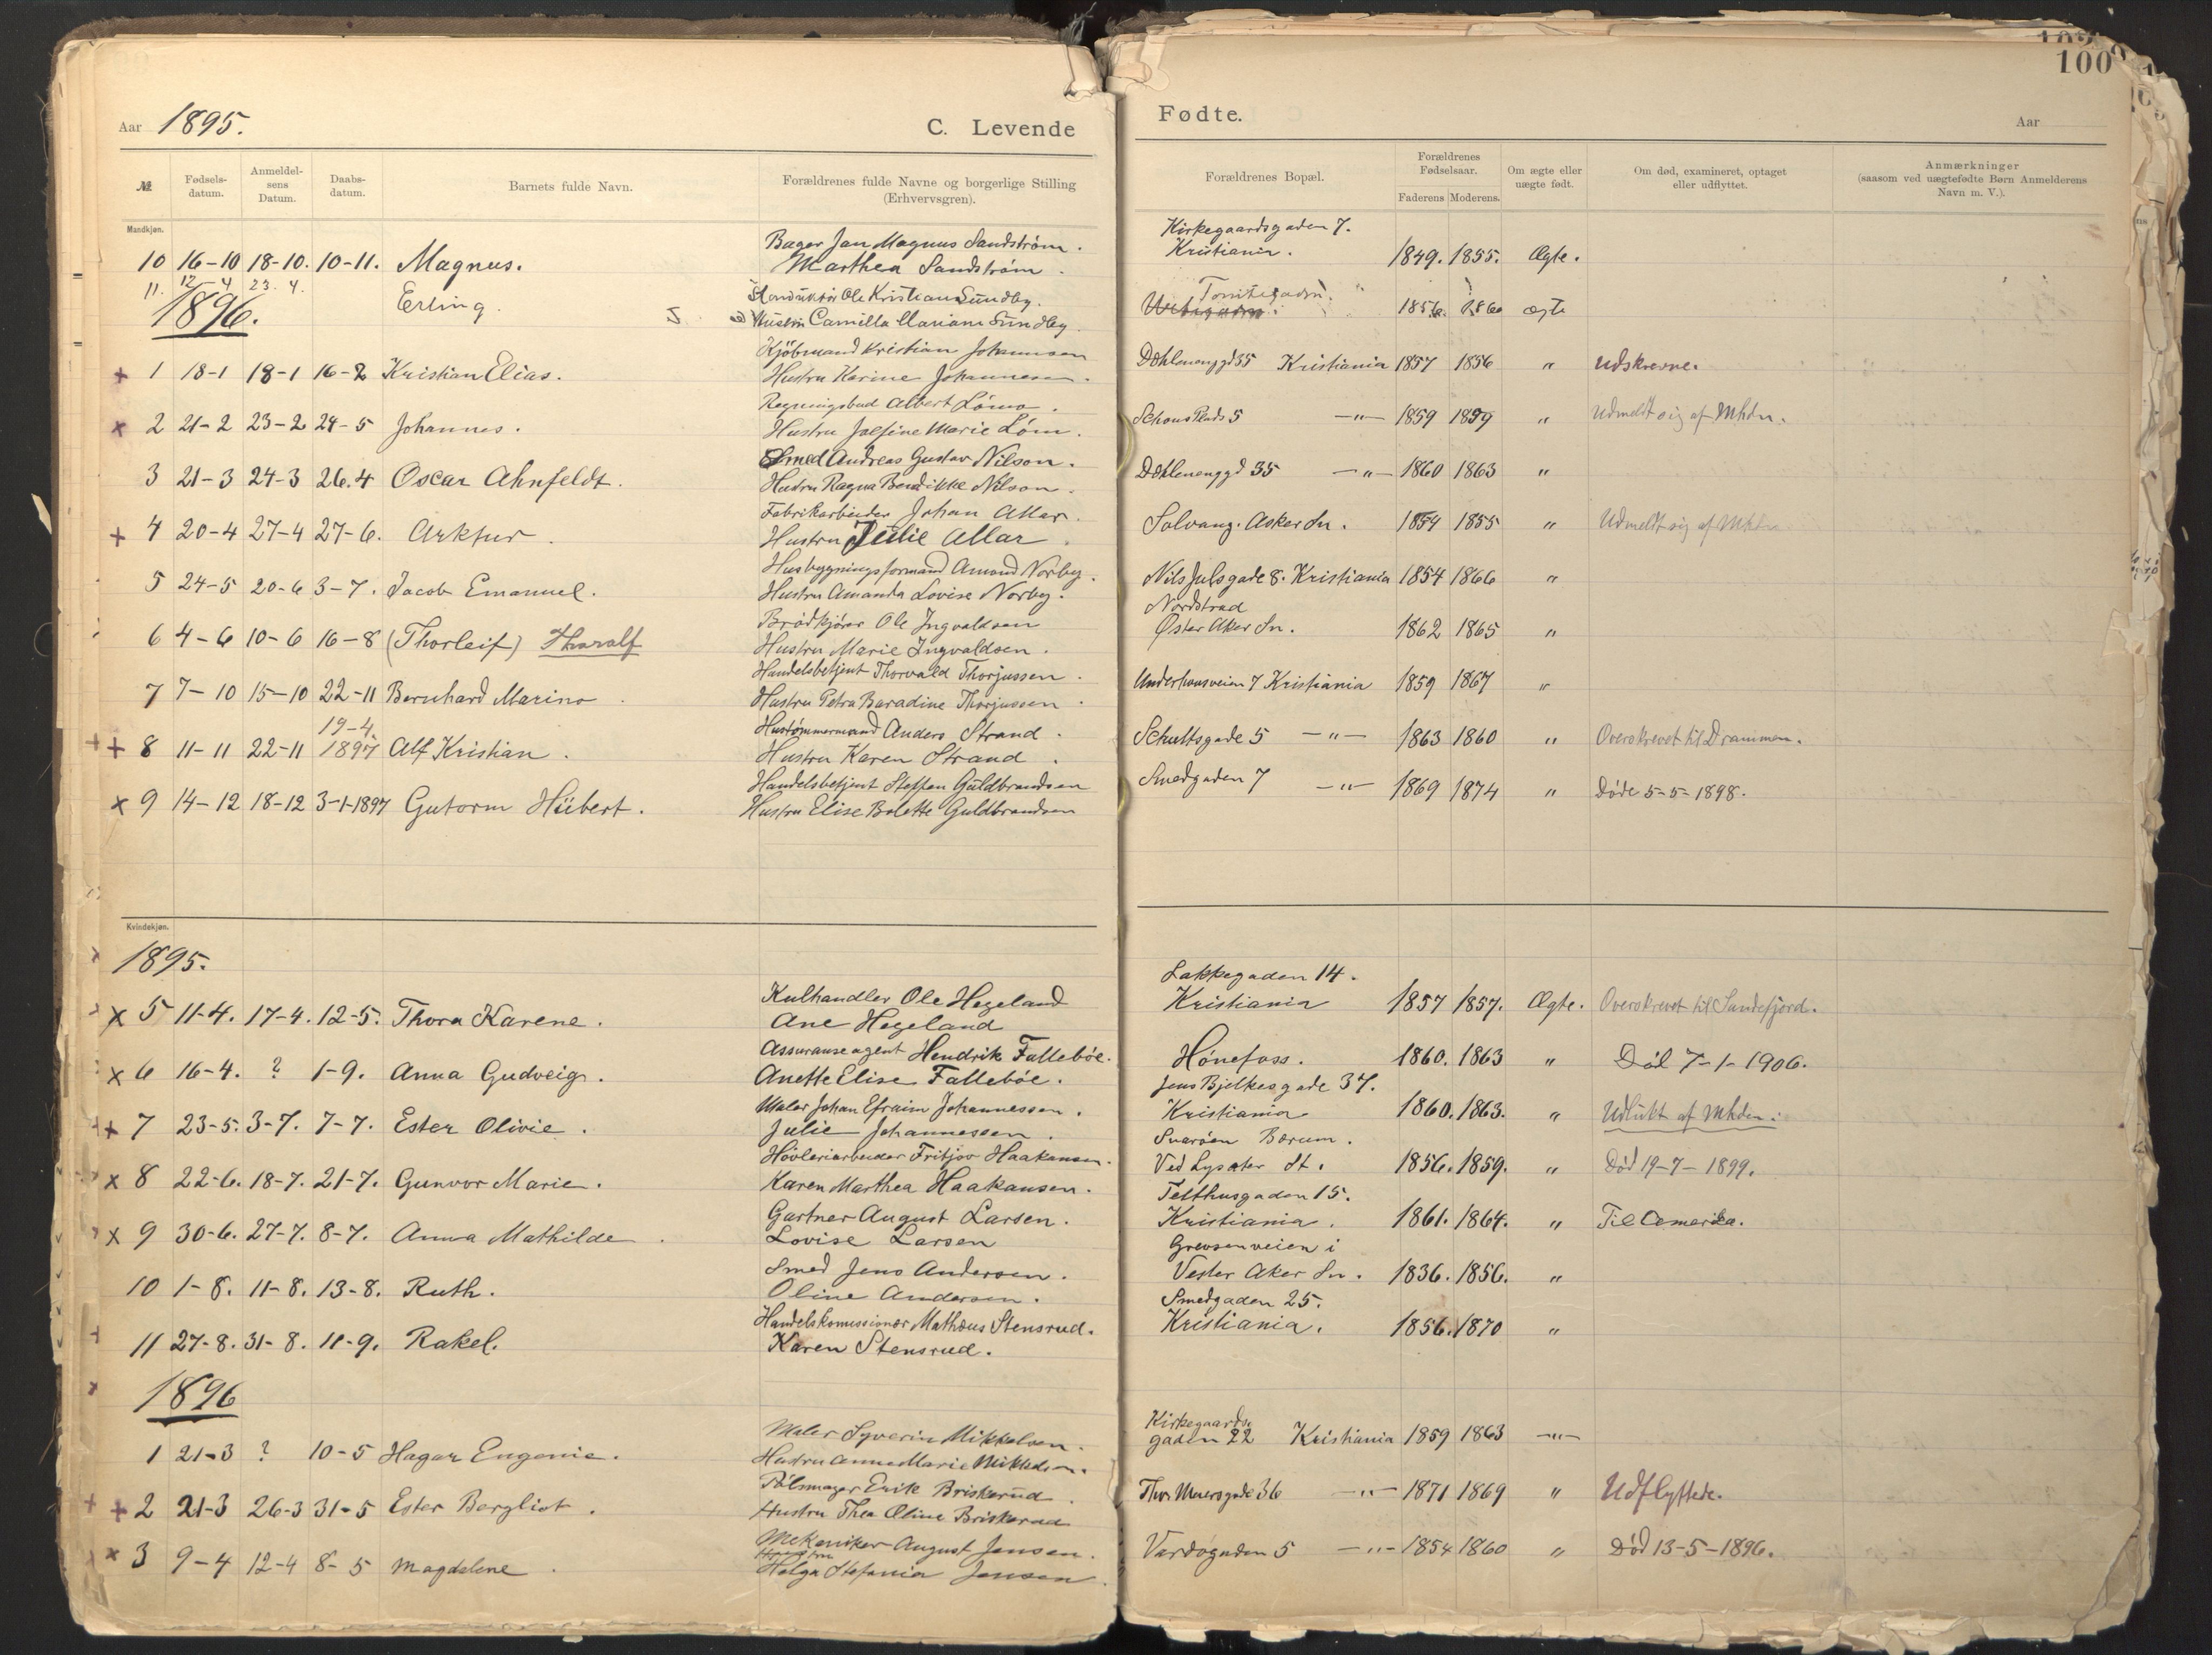 100
Aar 1895. C. Levende Fødte. Aar
№ Fødsels-datum. Anmeldel-sens Datum. Daabs-datum. Barnets fulde Navn. Forældrenes fulde Navne og borgerlige Stilling (Erhvervsgren). Forældrenes Bopæl. Forældrenes Fødselsaar. Faderens Moderens. Om ægte eller uægte født. Om død, examineret, optaget eller udflyttet. Anmærkninger (saasom ved uægtefødte Børn Anmelderens Navn m. V.).
Mandkjøn.
Bager Jan Magnus Sandström. Kirkegaardsgaden 7.
10 16-10 18-10. 10-11. Magnus. Marthea Sandström. Kristiania. 1849. 1855. Ægte.
11. 12-4 23.4. Erling. Ole Kristian Sundby.
1896. Hustru Camilla Mariane Sundby. 1860 ægte
Kjöbmand Kristian Johannesen
+ 1 18-1 18-1 16-2 Kristian Elias. Hustru Karine Johannesen. Döhlenenggd 35 Kristiania 1857 1856 " Udskrevne.
Regningsbud Albert Löms.
x 2 21-2 23-2 24-5 Johannes. Hustru Josefine Marie Löm. Schous Plads 5 -"- 1859 1859 " Udmeldt sig af Mhdn.
Smed Andreas Gustav Nilson.
3 21-3 24-3 26.4 Oscar Ahnfeldt. Hustru Ragna Bendikke Nilson. Döhlenenggd 35 -"- 1860 1863 "
Fabrikarbeider Johan Allar.
+ 4 20-4 27-4 27-6. Arktur. Hustru Julie Allar. Solvang. Asker Sn. 1854 1855 " Udmeldt sig af Mhdn
Husbygningsformand Amund Norby.
5 24-5 20-6 3-7. Jacob Emanuel. Hustru Amanda Lovise Norby. Nils Julsgade 8. Kristiania 1854 1866 "
Brödkjörer Ole Ingvaldsen Nordstrad
6 4-6 10-6 16-8 (Thorleif) Tharalf Hustru Marie Ingvaldsen. Øster Aker Sn. 1862 1865 "
Handelsbetjent Thorvald Thorjussen.
7 7-10 15-10 22-11 Bernhard Marino. Hustru Petra Baradine Thorjussen. Underhausveien 7 Kristiania 1859 1867 "
19-4. Hustømmermand Anders Strand.
+ 8 11-11 22-11 1897 Alf Kristian. Hustru Karen Strand. Schultsgade 5 -"- 1863 1860 " Overskrevet til Drammen.
Handelsbetjent Steffen Guldbrandsen
x 9 14-12 18-12 3-1-1897 Gutorm Hübert. Hustru Elise Bolette Guldbrandsen Smedgaden 7 -"- 1869 1874 " Døde 5-5-1898.
Kvindekjøn.
1895.
Kulhandler Ole Hegeland Lakkegaden 14.
x 5 11-4. 17-4. 12-5. Thora Karene. Ane Hegeland Kristiania 1857 1857. Ægte. Overskrevet til Sandefjord.
Assuranseagent Hendrik Falleböe.
x 6 16-4. ? 1-9. Anna Gudveig. Anette Elise Falleböe. Hönefoss. 1860. 1863 " Død 7-1-1906.
Maler Johan Efraim Johannessen. Jens Bjelkesgade 37.
+ 7 23-5. 3-7. 7-7. Ester Olivie. Julie Johannessen. Kristiania 1860. 1863. " Udlukt af Mhden.
Hövleriarbeider Fritjov Haakansen. Snaröen Bærum.
x 8 22-6. 18-7. 21-7. Gunvor Marie. Karen Marthea Haakansen. Ved Lysaker St. 1856. 1859. " Död 19-7-1899.
Gartner August Larsen. Telthusgaden 15.
x 9 30-6. 27-7. 8-7. Anna Mathilde. Lovise Larsen Kristiania. 1861. 1864. " Til Amerika.
Smed Jens Andersen. Grevsenveien i
10 1-8. 11-8. 13-8. Ruth. Oline Andersen. Vester Aker Sn. 1836. 1856. "
Handelskomissionær Mathæus Stensrud. Smedgaden 25.
11 27-8. 31-8. 11-9. Rakel. Karen Stensrud. Kristiania. 1856. 1870 "
1896
Maler Syverin Mikkelsen. Kirkegaards-
1 21-3 ? 10-5 Hagar Eugenie. Hustru Anne Marie Mikkelsen. gaden 22 Kristiania 1859 1863 -"-
Pölsmager Erik Briskerud.
+ 2 21-3 26-3 31-5 Ester Bergliot. Hustru Thea Oline Briskerud Thor Meiersgade 36 -"- 1871 1869 " Udflyttede.
Mekaniker August Jensen.
Hustru
x 3 9-4 12-4 8-5 Magdalene. Helga Stefania Jensen. Vardögaden 5 -"- 1854 1860 " Död 13-5-1896.